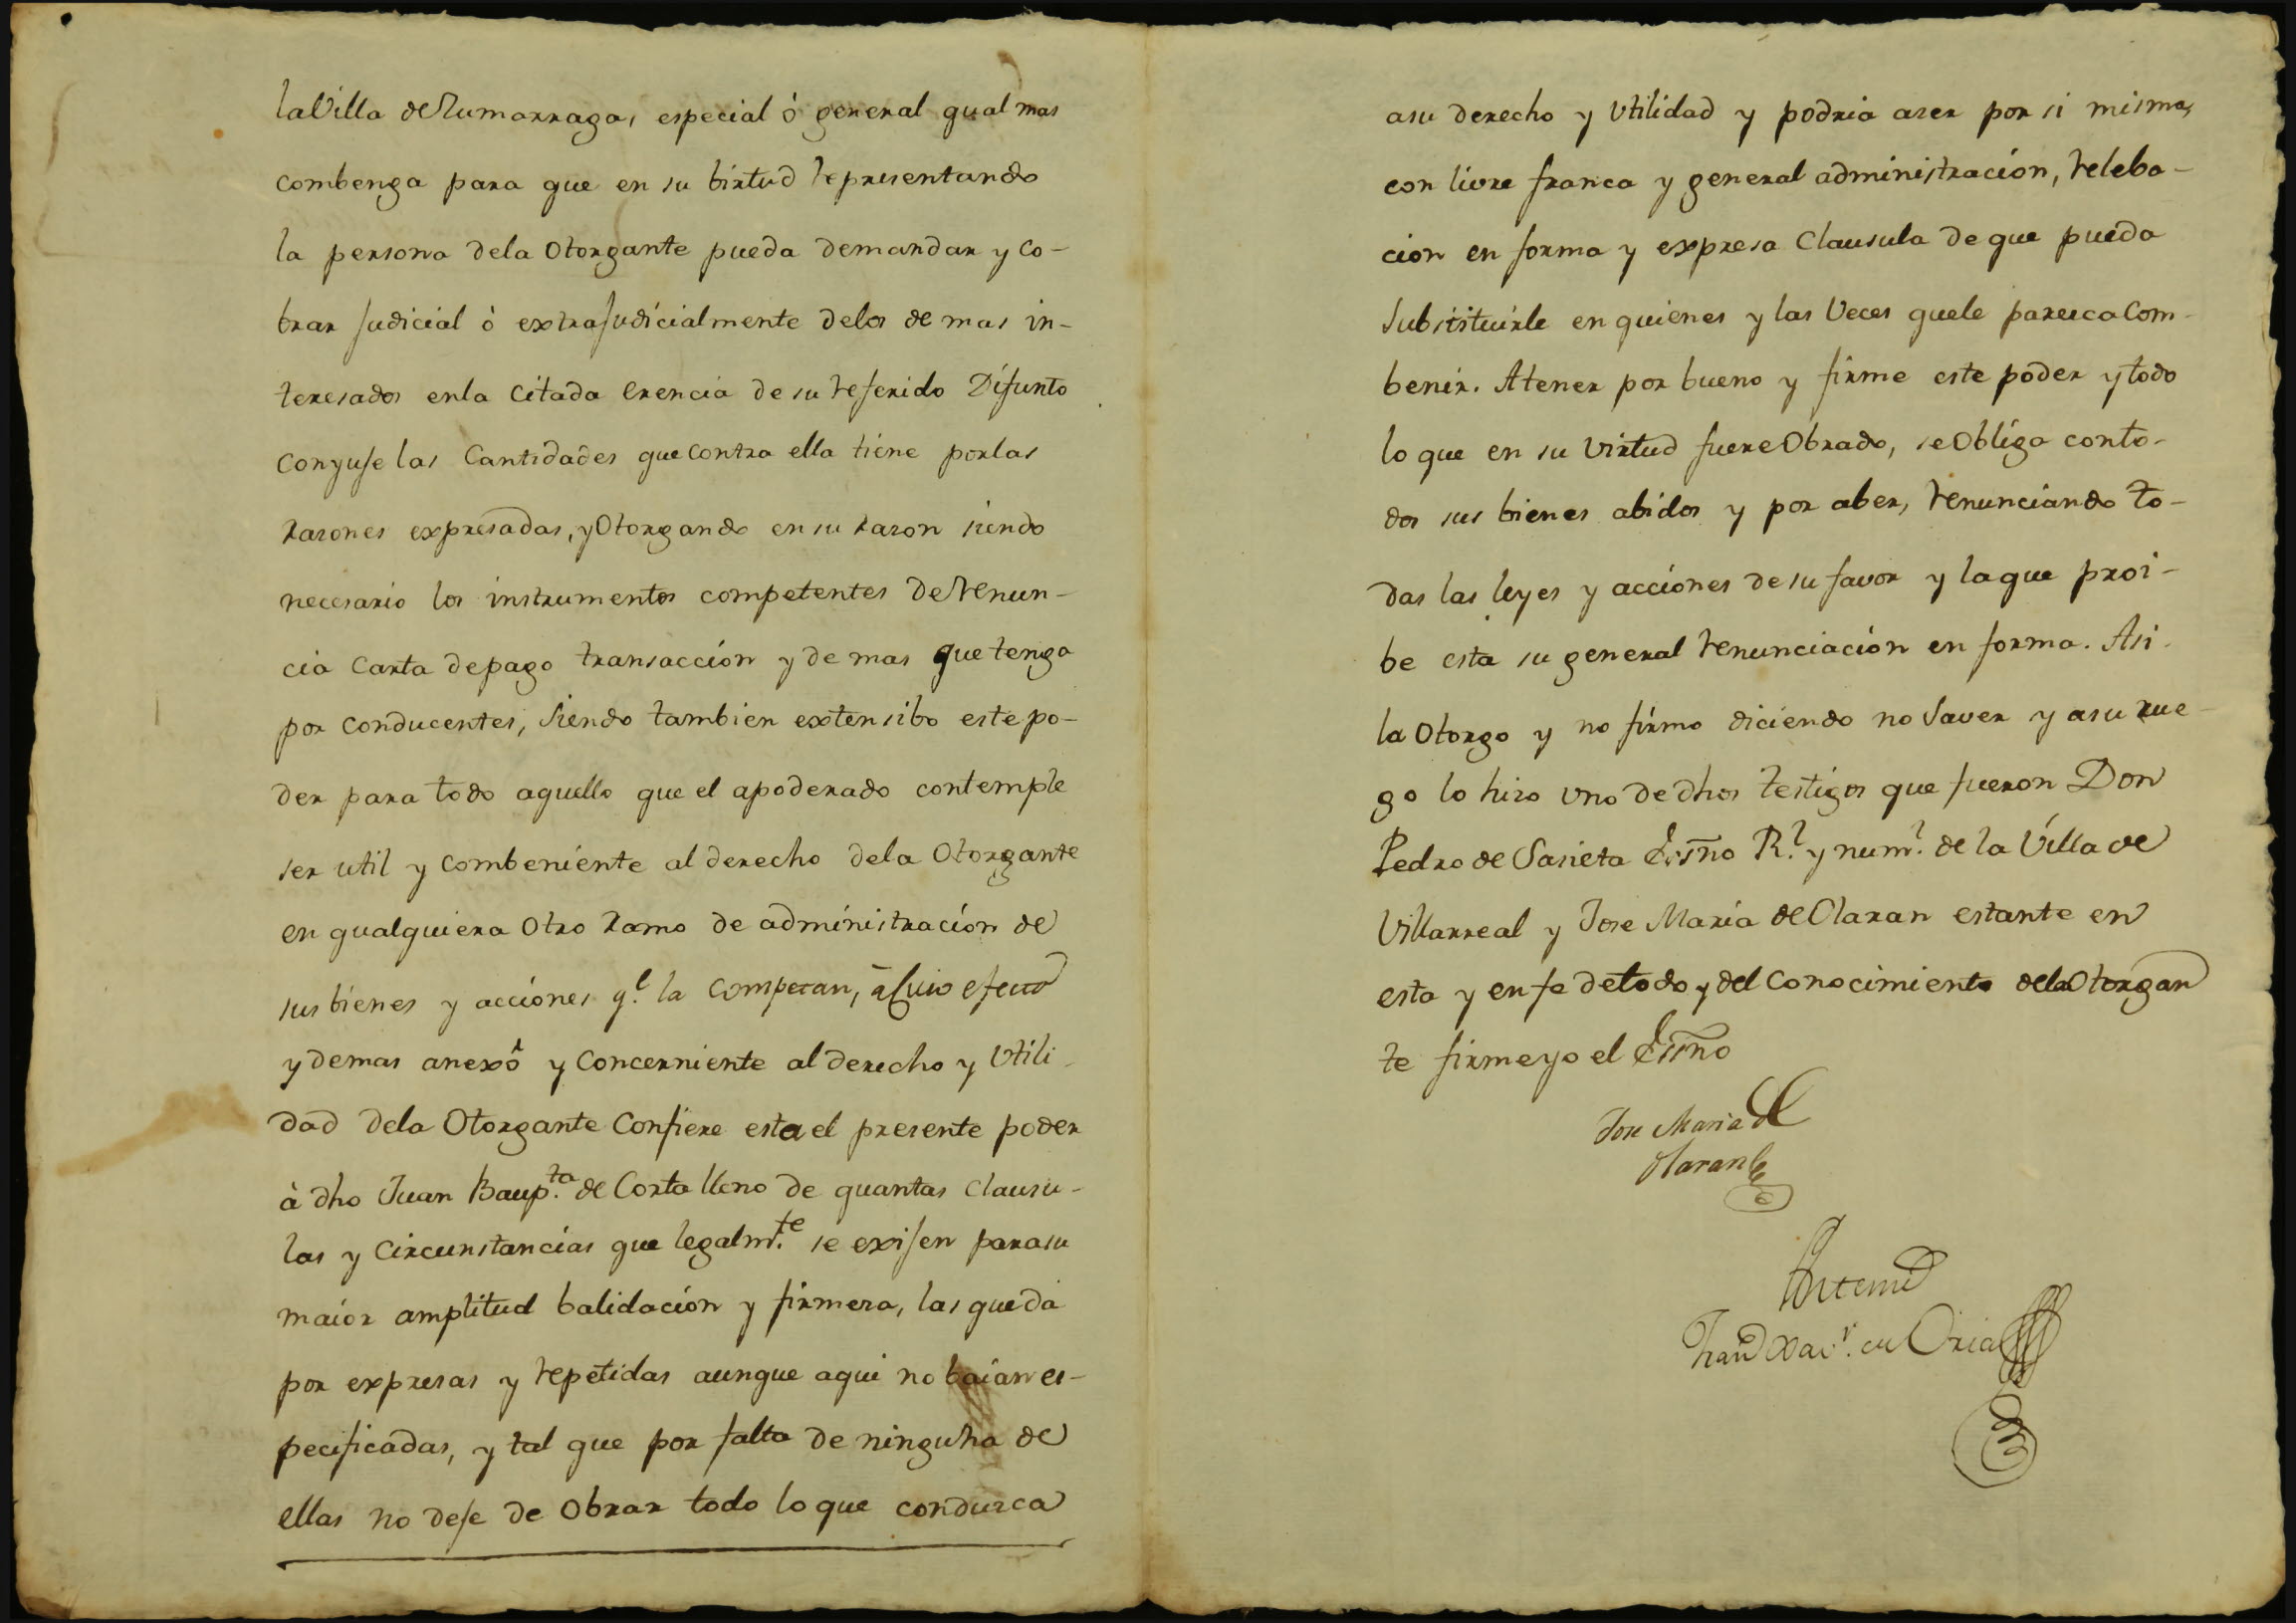 la Villa de Zumarraga, especial ó general qual mas
combenga para que en su birtud representando
la persona dela Otorgante pueda demandar y co-
brar Judicial ò extraJudicialmente delos de mas in-
teresados enla Citada erencia de su referido Difunto
Conyuje las Cantidades que contra ella tiene porlas
razones expresadas, y Otorgando en su razon siendo
necesario los instrumentos competentes de renun-
cia Carta depago transacción y de mas que tenga
por conducentes, Siendo tambien extensibo este po-
der para todo aquello que el apoderado contemple
ser util y combeniente al derecho dela Otorgante
en qualquiera Otro ramo de administración de
sus bienes y acciones q.e la competan, à Cuio efecto
y demas anexô y Concerniente al derecho y Utili-
dad dela Otorgante Confiere esta el presente poder
à dho Juan Baup.ta de Corta lleno de quantas Clausu-
las y Circunstancias que legalm.te se exijen para su
maior amplitud balidación y firmeza, las queda
por expresas y repetidas aunque aqui no baian es-
pecificadas, y tal que por falta de ninguna de
ellas no deje de Obrar todo lo que conduzca
asu derecho y Utilidad y podria azer por si misma,
con livre franca y general administración, releba-
cion en forma y expresa Clausula de que pueda
Substituirle en quienes y las Veces quele parezca Com-
benir. Atener por bueno y firme este poder y todo
lo que en su Virtud fuere Obrado, se Obliga conto-
dos sus bienes abidos y por aber, renunciando to-
das las leyes y acciones de su favor y la que proi-
be esta su general renunciación en forma. Asi
la Otorgo y no firmo diciendo no Saver y asu rue-
go lo hizo uno de dhos testigos que fueron Don
Pedro de Sasieta Essno R.l y num.l de la Villa de
Villarreal y Jose María de Olaran estante en
esta y en fe detodo y del Conocimiento dela Otorgan
te firme yo el Essno
Jose Maria de
Olaran
Antemi
Fran.co Xav.r de Oria